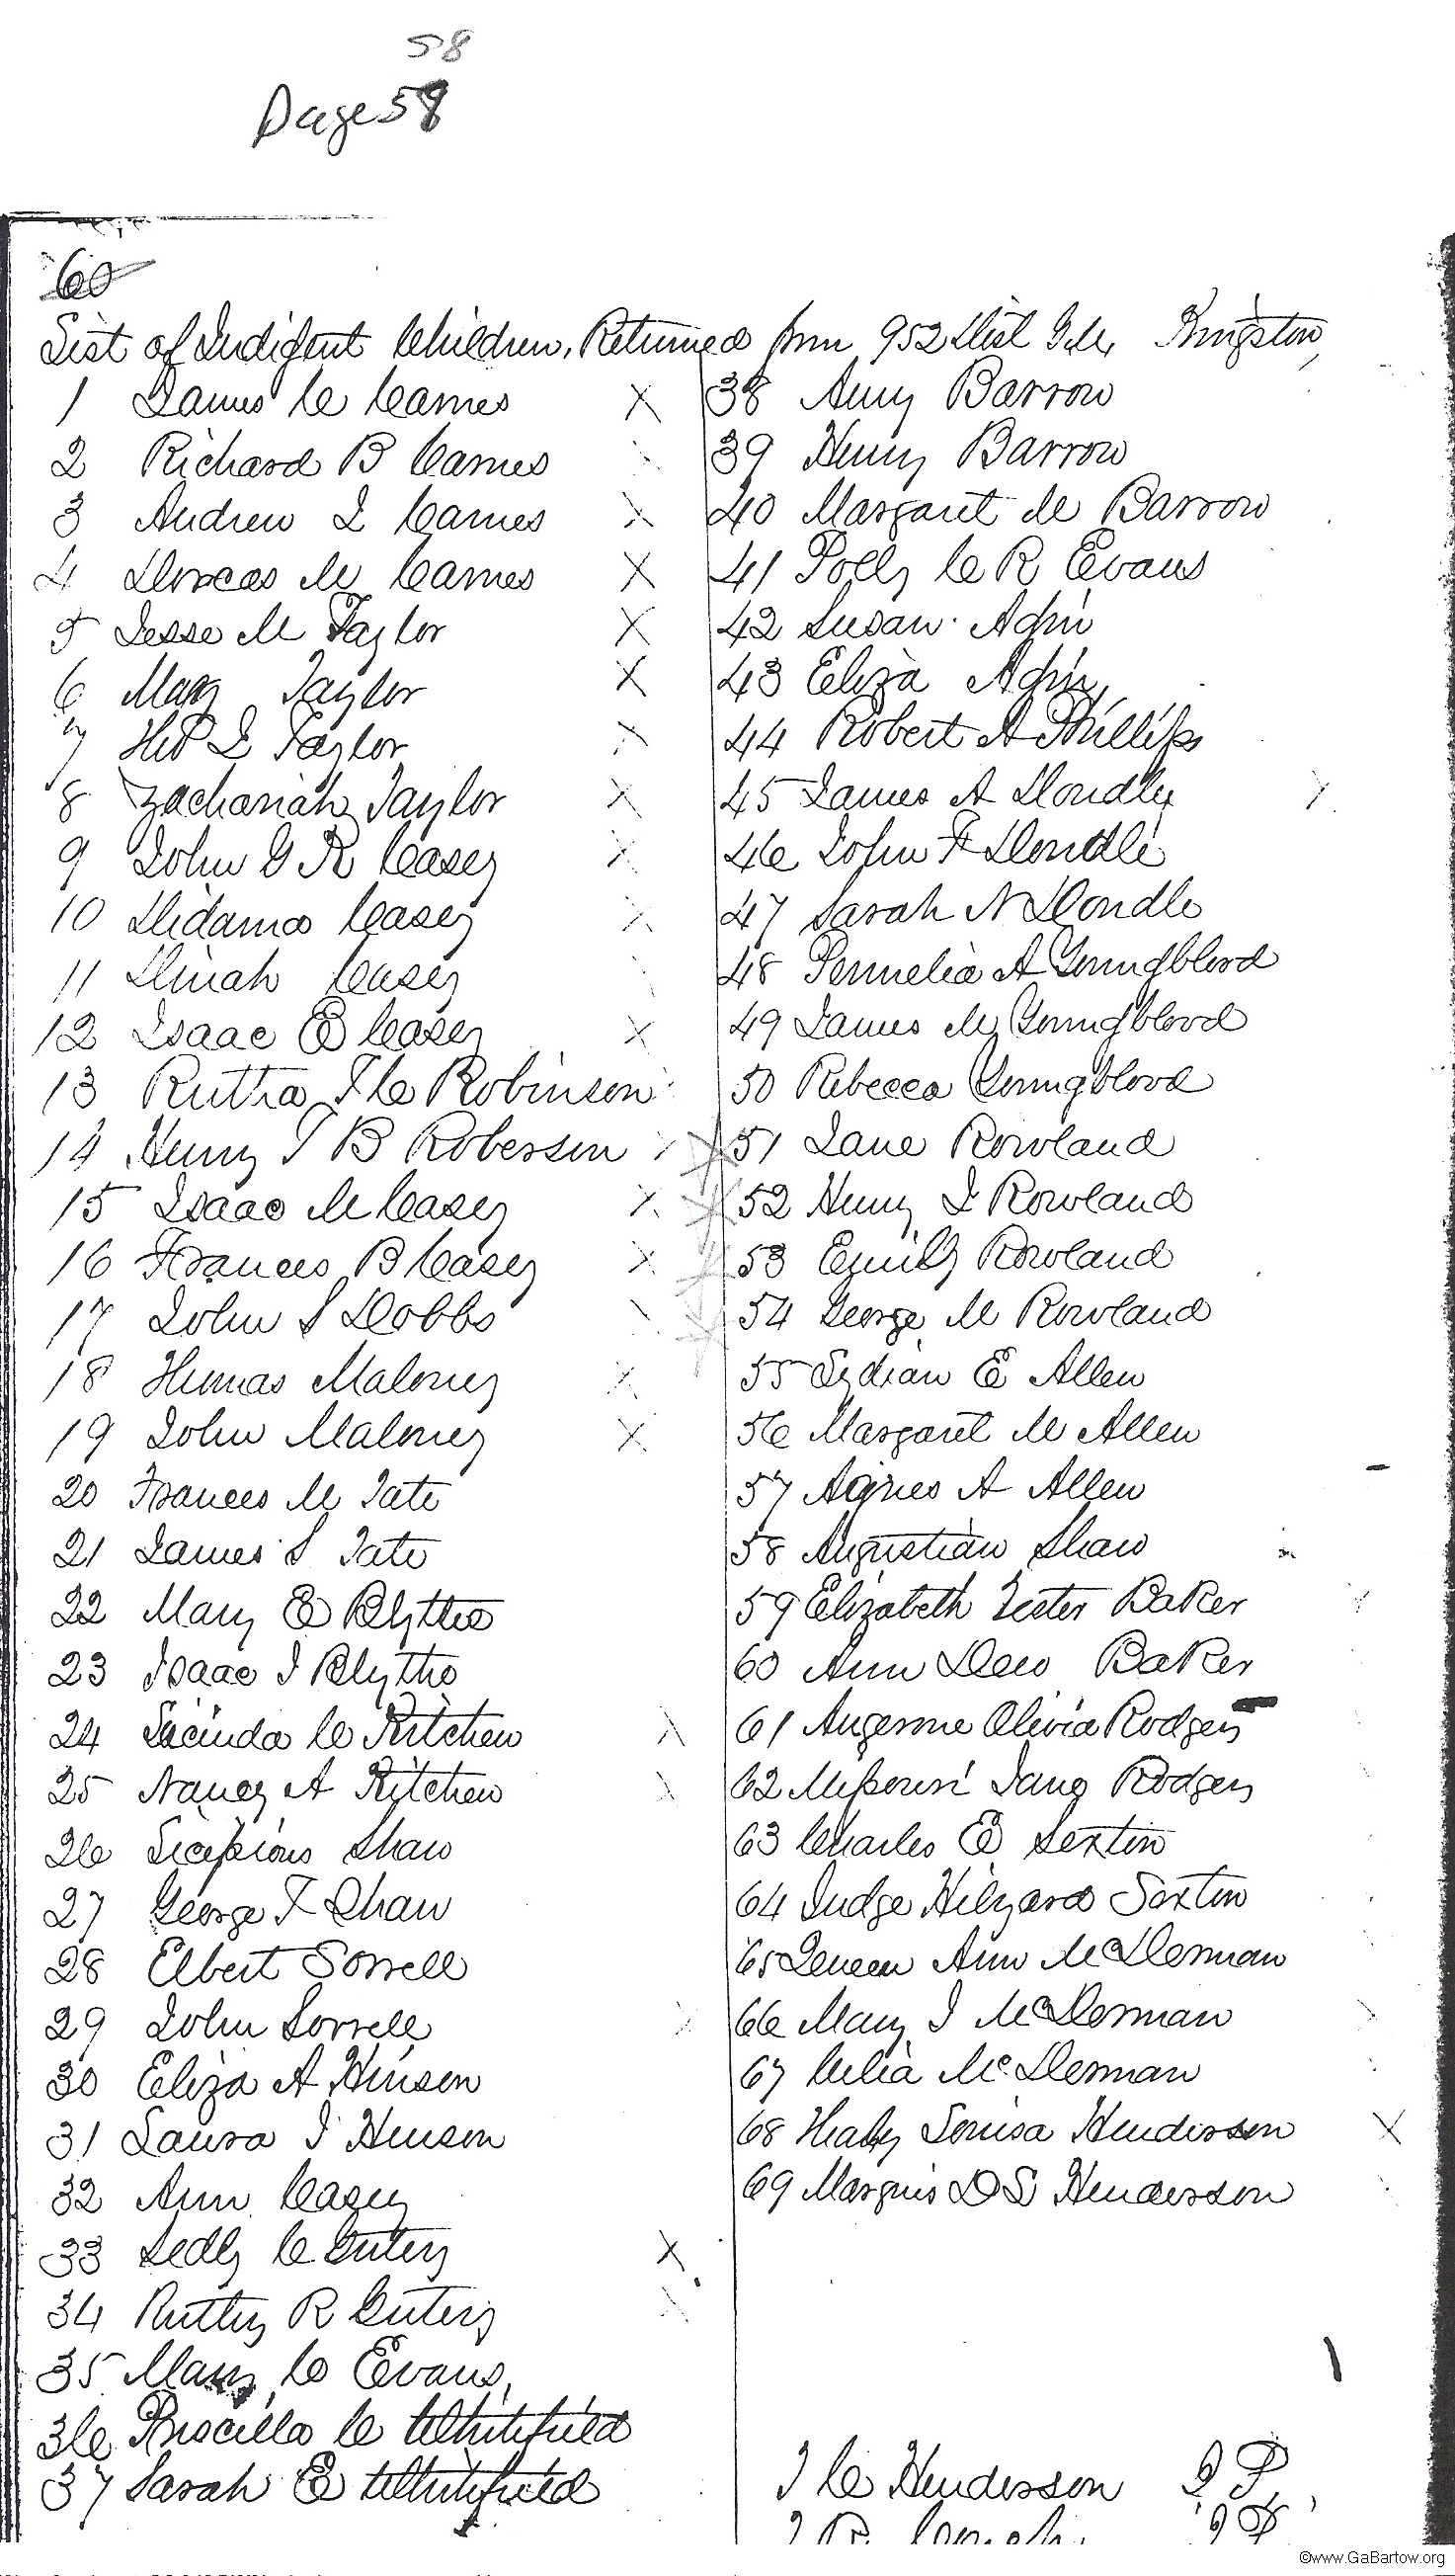 58
Page 58
60
List of Indigent Children, Returned from 952 Dist G.M. Kingston
1 James C Carnes X
2 Richard B Carnes
3 Andrew J Carnes X
4 Dorcas M Carnes X
5 Jesse M Taylor X
6 Mary Taylor X
7 Taylor
8 Zachariah Taylor X
9 John G R Casey X
10 Didama Casey X
11 Dinah Casey
12 Isaac E Casey X
13 Rutha Robinson
14 Henry T B Roberson
15 Isaac M Casey X
16 Frances B Casey X
17 John S Dobbs
18 Thomas Maloney X
19 John Maloney X
20 Frances M Tate
21 James S Tate
22 Mary E Blythe
23 Isaac J Blythe
24 Lucinda C Kitchen X
25 Nancy A Kitchen X
26 Shaw
27 George F Shaw
28 Elbert Sorrell
29 John Sorrell X
30 Eliza A Hinson
31 Laura J Hinson
32 Ann Casey
33 C Gutery X
34 R Gutery
35 Mary C Evans
36 Priscilla C Whitefield
37 Sarah E Whitefield
38 Amy Barrow
39 Henry Barrow
40 Margaret M Barrow
41 Polly C R Evans
42 Susan
43 Eliza
44 Robert A Phillips
45 James A
46 John F
47 Sarah N
48 Permelia A Youngblood
49 James M Youngblood
50 Rebecca Youngblood
51 Jane Rowland
52 Henry J Rowland
53 Emily Rowland
54 George M Rowland
55 E Allen
56 Margaret M Allen
57 Agnes A Allen
58 Augustian Shaw
59 Elizabeth Lester Baker
60 Ann Baker
61 Olivia Rodgers
62 Missouri Jane Rodgers
63 Charles E Sexton
64 Judge Hilyard Sexton
65 Ann McDerman
66 Mary J McDerman
67 Celia McDerman
68 Louisa Henderson X
69 Marquis D S Henderson
J C Henderson J P
©www.GaBartow.org